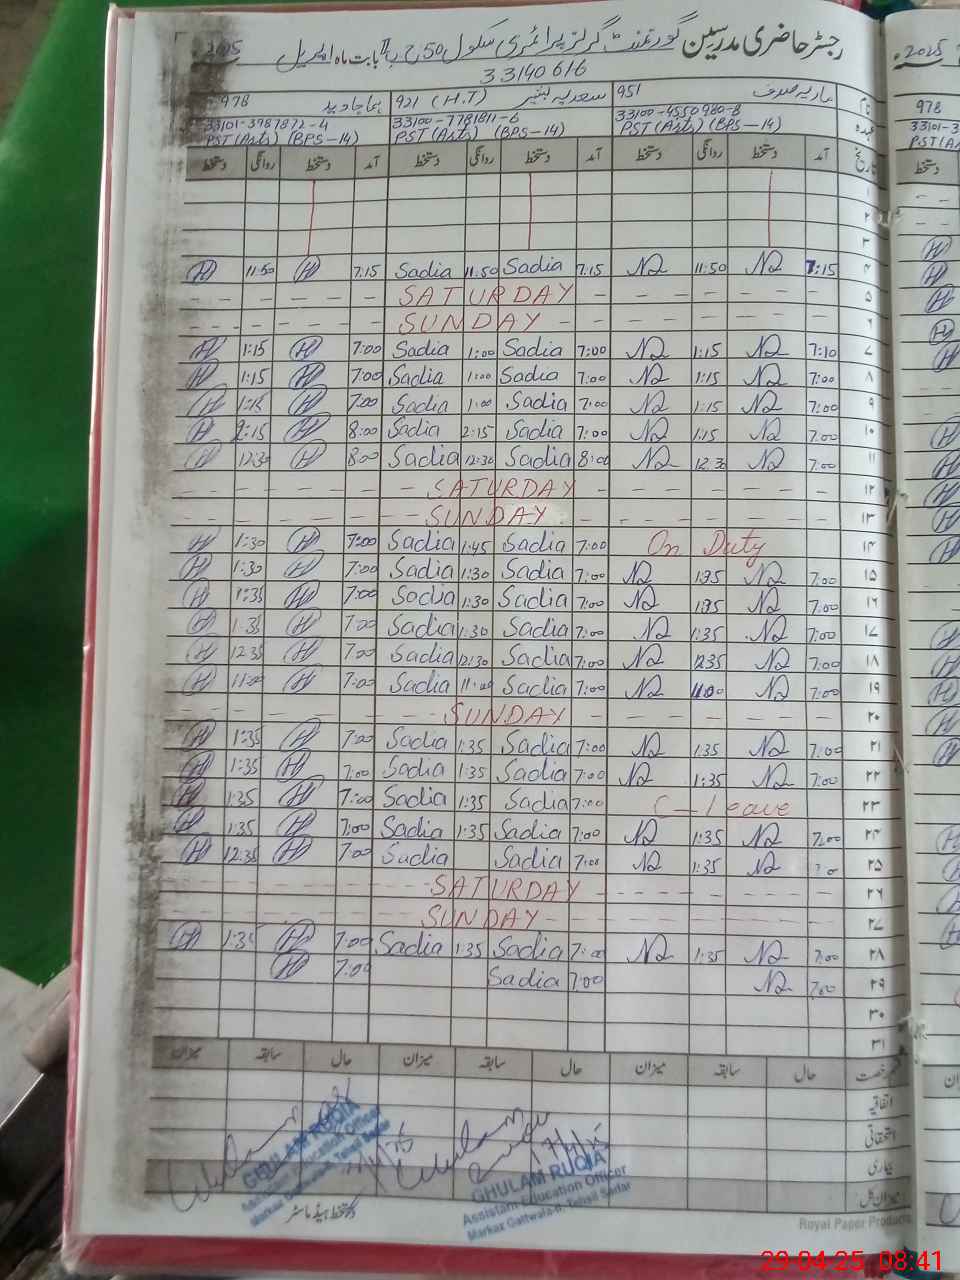 رجسٹر حاضری مدرسین گورنمنٹ گرلز پرائمری سکول 50 ج ب بابت ماہ اپریل 2025
33140616
نام ماریہ صدف 951 سعدیہ بشیر 921 (H.T) ہما جاوید 978
33100-4550980-8 33100-7781811-6 33101-3987872-4
عہدہ PST (Arts) (BPS-14) PST (Arts) (BPS-14) PST (Arts) (BPS-14)
تاریخ آمد دستخط روانگی دستخط آمد دستخط روانگی دستخط آمد دستخط روانگی دستخط
۱
۲
۳
۴ 7:15 11:50 7:15 Sadia 11:50 Sadia 7:15 H 11:50 H
۵ SATURDAY
۶ SUNDAY
۷ 7:10 1:15 7:00 Sadia 1:00 Sadia 7:00 H 1:15 H
۸ 7:00 1:15 7:00 Sadia 1:00 Sadia 7:00 H 1:15 H
۹ 7:00 1:15 7:00 Sadia 1:00 Sadia 7:00 H 1:15 H
۱۰ 7:00 1:15 7:00 Sadia 2:15 Sadia 8:00 H 2:15 H
۱۱ 7:00 12:30 8:00 Sadia 12:30 Sadia 8:00 H 12:30 H
۱۲ SATURDAY
۱۳ SUNDAY
۱۴ On Duty 7:00 Sadia 1:45 Sadia 7:00 H 1:30 H
۱۵ 7:00 1:35 7:00 Sadia 1:30 Sadia 7:00 H 1:30 H
۱۶ 7:00 1:35 7:00 Sadia 1:30 Sadia 7:00 H 1:35 H
۱۷ 7:00 1:35 7:00 Sadia 1:30 Sadia 7:00 H 1:35 H
۱۸ 7:00 12:35 7:00 Sadia 12:30 Sadia 7:00 H 12:35 H
۱۹ 7:00 11:00 7:00 Sadia 11:00 Sadia 7:00 H 11:00 H
۲۰ SUNDAY
۲۱ 7:00 1:35 7:00 Sadia 1:35 Sadia 7:00 H 1:35 H
۲۲ 7:00 1:35 7:00 Sadia 1:35 Sadia 7:00 H 1:35 H
۲۳ C-Leave 7:00 Sadia 1:35 Sadia 7:00 H 1:35 H
۲۴ 7:00 1:35 7:00 Sadia 1:35 Sadia 7:00 H 1:35 H
۲۵ 1:35 7:00 Sadia Sadia 7:00 H 12:35 H
۲۶ SATURDAY
۲۷ SUNDAY
۲۸ 7:00 1:35 7:00 Sadia 1:35 Sadia 7:00 H 1:35 H
۲۹ 7:00 7:00 Sadia 7:00 H
۳۰
۳۱
رخصت حال سابقہ میزان حال سابقہ میزان حال سابقہ میزان
اتفاقیہ
استحقاقی
بیماری
میزان کل
GHULAM RUQIA
Assistant Education Officer
Markaz Gattwala-II, Tehsil Sadar
GHULAM RUQIA
Assistant Education Officer
Markaz Gattwala-II, Tehsil Sadar
دستخط ہیڈ ماسٹر
Royal Paper Products
2025
978
29-04-25 08:41